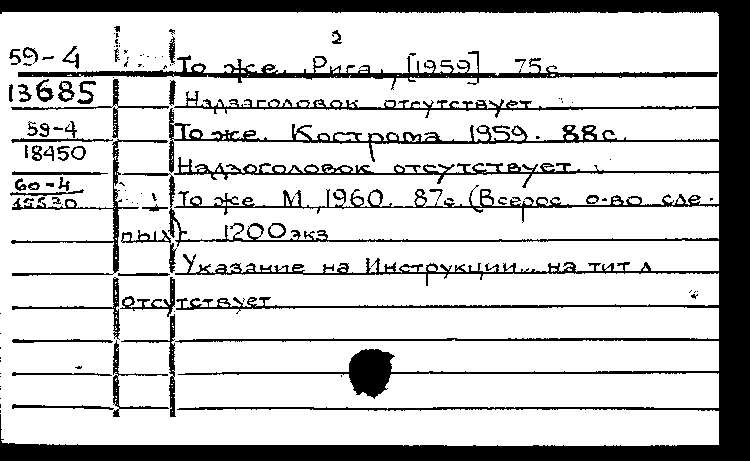 2
59-4 То же. Рига, [1959] 75с
13685 Надзаголовок отсутствует.
59-4 То же. Кострома, 1959. 88с.
18450 Надзаголовок отсутствует.
60-4 То же М., 1960. 87с. (Всерос. о-во сле-
пых). 1200экз
Указание на Инструкции... на тит л
отсутствует